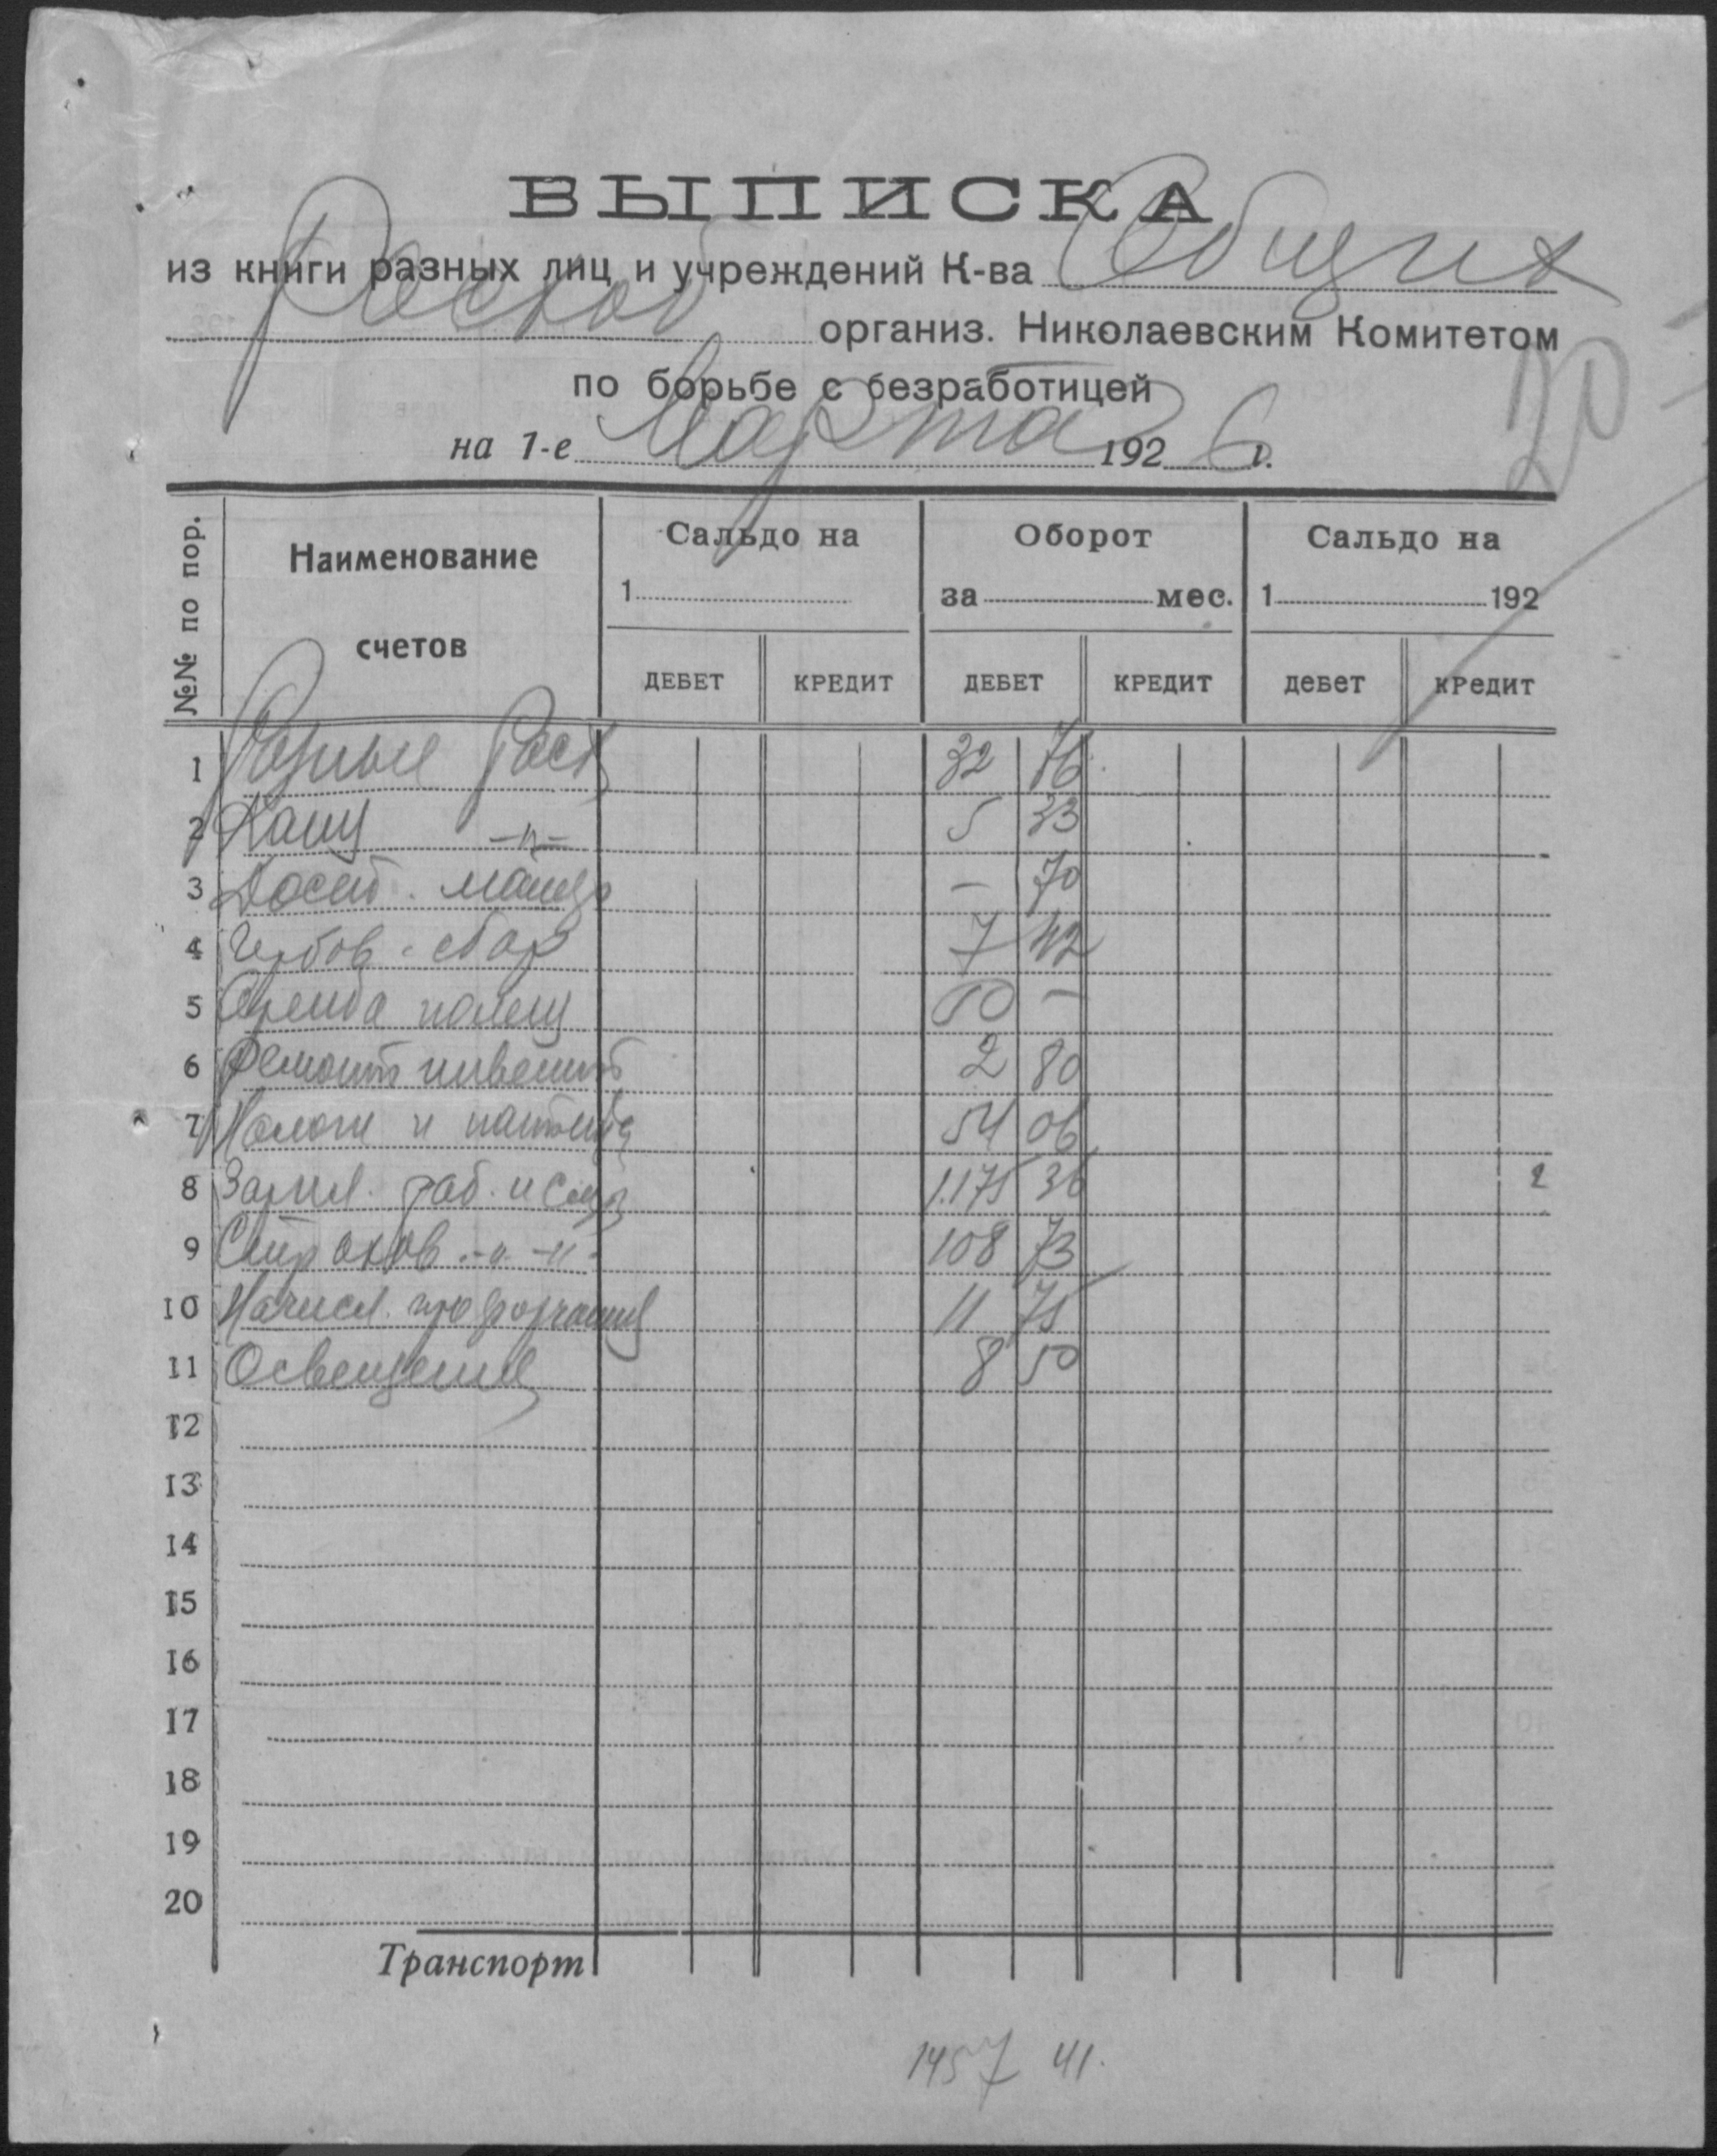 ВЫПИСКА
из книги разных лиц и учреждений К-ва Общих
Расход организ. Николаевским Комитетом
по борьбе с безработицей
на 1-е Марта 1926 г.
20
№№ по пор. Наименование счетов Сальдо на 1 Оборот за мес. Сальдо на 1 192
ДЕБЕТ КРЕДИТ ДЕБЕТ КРЕДИТ ДЕБЕТ КРЕДИТ
1 Разные Расх 32 76
2 Канц —"— 5 33
3 Дост. — 70
4 Гербов. сбор 7 42
5 Аренда помещ 50 —
6 Ремонт инвент 2 80
7 Налоги и патенты 54 06
8 Зарпл. раб. и служ 1.175 36 2
9 Страхов. -"- -"- 108 73
10 Начисл. 11 75
11 Освещение 8 50
12
13
14
15
16
17
18
19
20
Транспорт
1457 41.